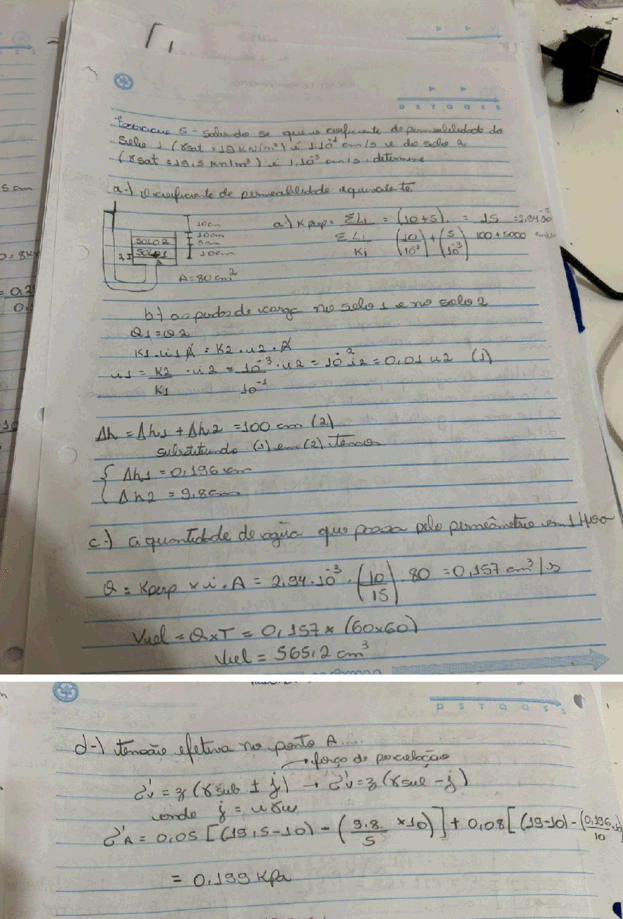 D S T Q Q S S
Exercício 5 - Sabendo se que o coeficiente de permeabilidade do
solo 1 (γsat = 19 KN/m³) é 1.10⁻¹ cm/s e do solo 2
(γsat = 19,5 KN/m³) é 1.10⁻³ cm/s, determine
a-) O coeficiente de permeabilidade equivalente.
10cm
10cm
SOLO 2 5cm
SOLO 1 10cm
A = 80 cm²
a-) Kperp = ΣLi / Σ Li/Ki = (10+5) / (10/10⁻¹) + (5/10⁻³) = 15 / 100 + 5000 = 2,94.10⁻³ cm/s
b-) as perdas de carga no solo 1 e no solo 2
Q1 = Q2
K1 . i1 . A = K2 . i2 . A
i1 = K2/K1 . i2 = 10⁻³/10⁻¹ . i2 = 10⁻² i2 = 0,01 i2 (1)
Δh = Δh1 + Δh2 = 100 cm (2)
substituindo (1) em (2) temos
{ Δh1 = 0,196 cm
{ Δh2 = 9,8 cm
c-) a quantidade de água que passa pelo permeâmetro em 1 Hora
Q = Kperp × i . A = 2,94.10⁻³ . (10/15) . 80 = 0,157 cm³/s
Vol = Q × T = 0,157 × (60×60)
Vol = 565,2 cm³
D S T Q Q S S
d-) tensão efetiva no ponto A
força de percolação
σ'v = z (γsub ± j) → σ'v = z (γsub - j)
onde j = i γw
σ'A = 0,05 [(19,5-10) - (9.8/5 ×10)] + 0,08 [(19-10) - (0,196/10
= 0,199 KPa